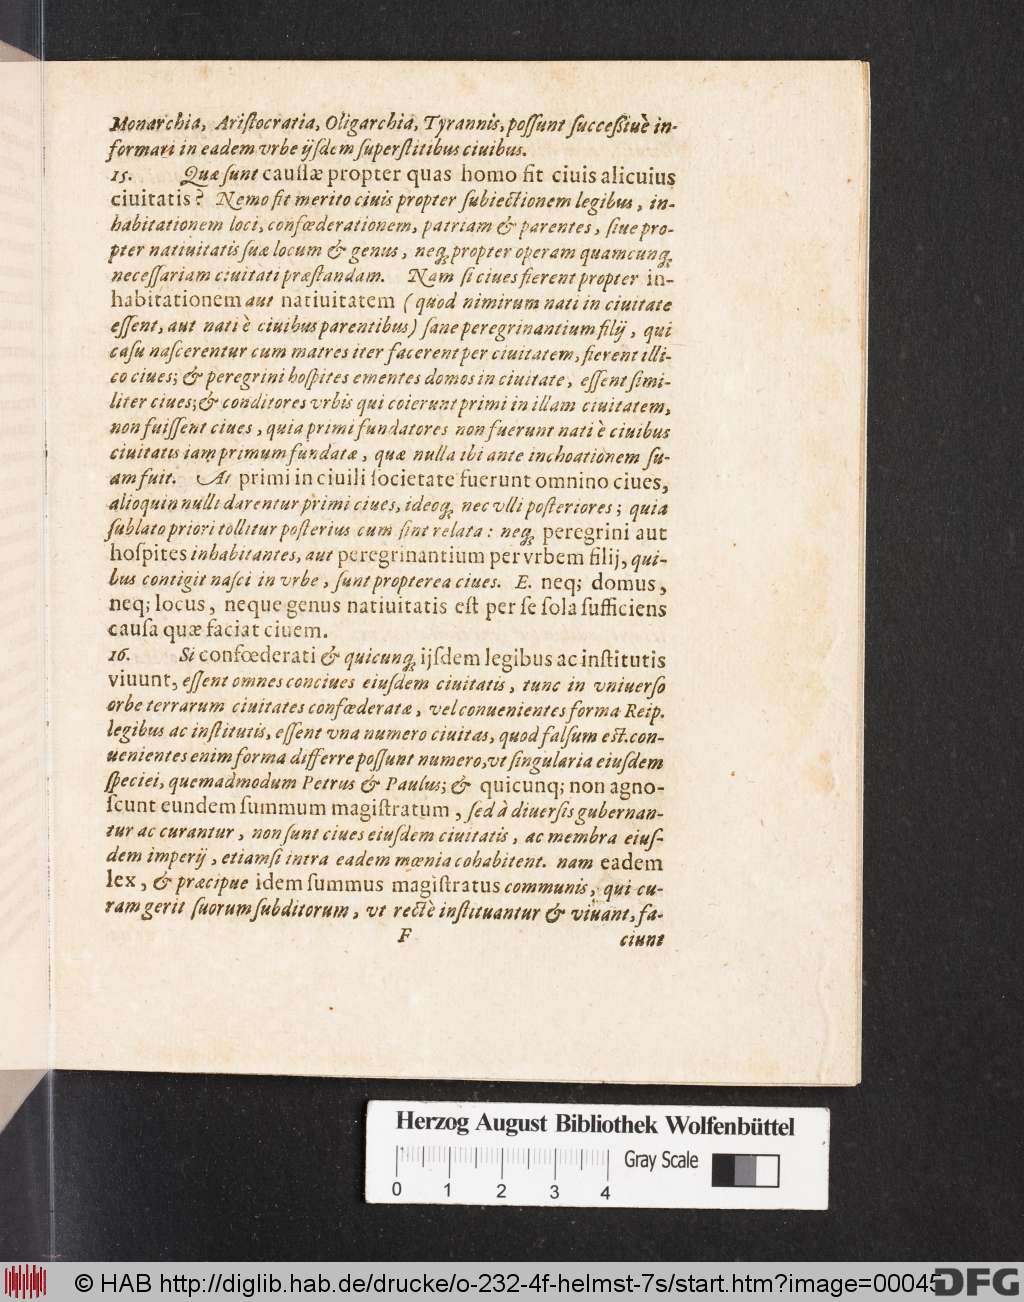 Monarchia, Aristocratia, Oligarchia, Tyrannis, possunt successiuè in-
formari in eadem vrbe ijsdem superstitibus ciuibus.
15. Quæ sunt caussæ propter quas homo fit ciuis alicuius
ciuitatis? Nemo fit merito ciuis propter subiectionem legibus, in-
habitationem loci, confœderationem, patriam & parentes, siue pro-
pter natiuitatis suæ locum & genus, neq; propter operam quamcunq;
necessariam ciuitati præstandam. Nam si ciues fierent propter in-
habitationem aut natiuitatem (quod nimirum nati in ciuitate
essent, aut nati è ciuibus parentibus) sane peregrinantium filij, qui
casu nascerentur cum matres iter facerent per ciuitatem, fierent illi-
co ciues; & peregrini hospites ementes domos in ciuitate, essent simi-
liter ciues; & conditores vrbis qui coierunt primi in illam ciuitatem,
non fuissent ciues, quia primi fundatores non fuerunt nati è ciuibus
ciuitatis iam primum fundatæ, quæ nulla ibi ante inchoationem su-
am fuit. At primi in ciuili societate fuerunt omnino ciues,
alioquin nulli darentur primi ciues, ideoq; nec vlli posteriores; quia
sublato priori tollitur posterius cum sint relata: neq; peregrini aut
hospites inhabitantes, aut peregrinantium per vrbem filij, qui-
bus contigit nasci in vrbe, sunt propterea ciues. E. neq; domus,
neq; locus, neque genus natiuitatis est per se sola sufficiens
causa quæ faciat ciuem.
16. Si confœderati & quicunq; ijsdem legibus ac institutis
viuunt, essent omnes conciues eiusdem ciuitatis, tunc in vniuerso
orbe terrarum ciuitates confœderatæ, vel conuenientes forma Reip.
legibus ac institutis, essent vna numero ciuitas, quod falsum est. con-
uenientes enim forma differre possunt numero, vt singularia eiusdem
speciei, quemadmodum Petrus & Paulus; & quicunq; non agno-
scunt eundem summum magistratum, sed à diuersis gubernan-
tur ac curantur, non sunt ciues eiusdem ciuitatis, ac membra eius-
dem imperij, etiamsi intra eadem mœnia cohabitent. nam eadem
lex, & præcipue idem summus magistratus communis, qui cu-
ram gerit suorum subditorum, vt rectè instituantur & viuant, fa-
F ciunt
Herzog August Bibliothek Wolfenbüttel
Gray Scale
0 1 2 3 4
© HAB http://diglib.hab.de/drucke/o-232-4f-helmst-7s/start.htm?image=00045
DFG